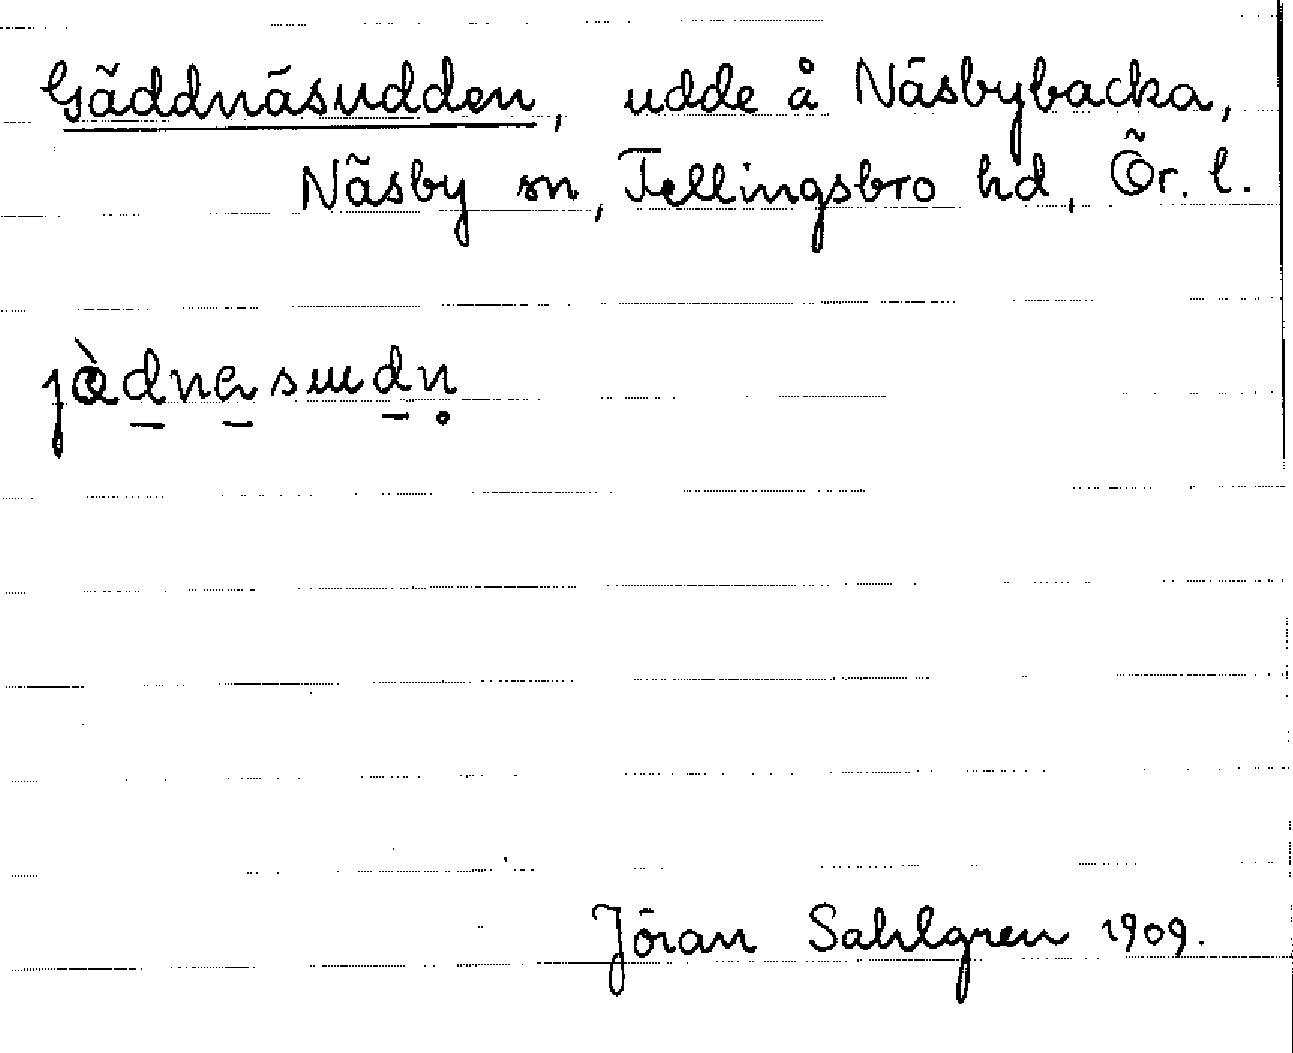 Gäddnäsudden, udde å Näsbybacka,
Näsby sn, Fellingsbro hd, Ör. l.
Jöran Sahlgren 1909.